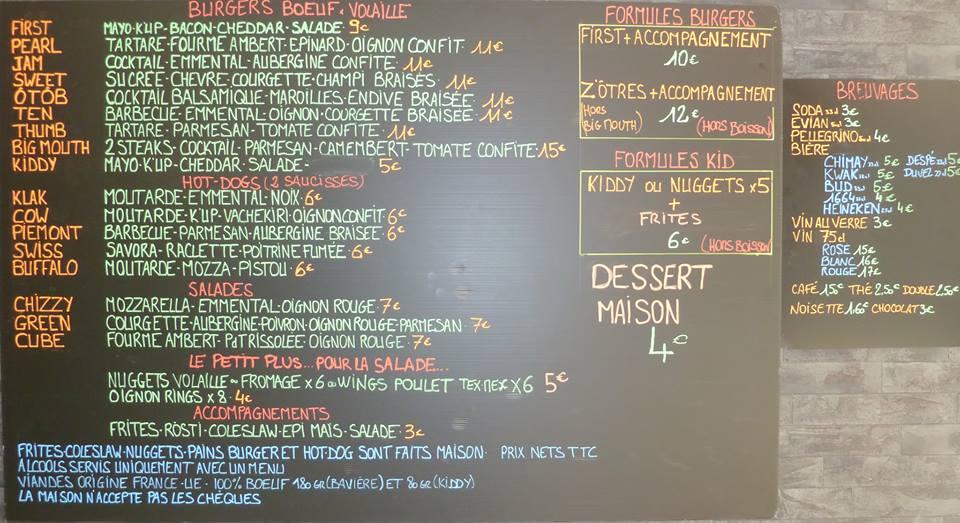 BURGERS BOEUF & VOLAILLE
FIRST MAYO-K'UP-BACON-CHEDDAR-SALADE 9€
PEARL TARTARE-FOURME AMBERT-EPINARD-OIGNON CONFIT 11€
JAM COCKTAIL-EMMENTAL-AUBERGINE CONFITE 11€
SWEET SUCRÉE-CHEVRE-COURGETTE-CHAMPI BRAISÉS 11€
OTOB COCKTAIL BALSAMIQUE-MAROILLES-ENDIVE BRAISÉE 11€
TEN BARBECUE-EMMENTAL-OIGNON-COURGETTE BRAISÉE 11€
THUMB TARTARE-PARMESAN-TOMATE CONFITE 11€
BIG MOUTH 2 STEAKS-COCKTAIL-PARMESAN-CAMEMBERT-TOMATE CONFITE 15€
KIDDY MAYO-K'UP-CHEDDAR-SALADE- 5€
HOT-DOGS (2 SAUCISSES)
KLAK MOUTARDE-EMMENTAL-NOIX 6€
COW MOUTARDE-K'UP-VACHEKIRI-OIGNON CONFIT 6€
PIEMONT BARBECUE-PARMESAN-AUBERGINE BRAISÉE 6€
SWISS SAVORA-RACLETTE-POITRINE FUMÉE 6€
BUFFALO MOUTARDE-MOZZA-PISTOU 6€
SALADES
CHIZZY MOZZARELLA-EMMENTAL-OIGNON ROUGE 7€
GREEN COURGETTE-AUBERGINE-POIVRON-OIGNON ROUGE-PARMESAN 7€
CUBE FOURME AMBERT-PdT RISSOLÉE-OIGNON ROUGE 7€
LE PETIT PLUS... POUR LA SALADE...
NUGGETS VOLAILLE FROMAGE x6 ou WINGS POULET TEX MEX x6 5€
OIGNON RINGS x8 4€
ACCOMPAGNEMENTS
FRITES-RÖSTI-COLESLAW-EPI MAIS-SALADE 3€
FRITES-COLESLAW-NUGGETS-PAINS BURGER ET HOT-DOG SONT FAITS MAISON- PRIX NETS TTC
ALCOOLS SERVIS UNIQUEMENT AVEC UN MENU
VIANDES ORIGINE FRANCE-UE- 100% BOEUF 180GR (BAVIÈRE) ET 80GR (KIDDY)
LA MAISON N'ACCEPTE PAS LES CHÈQUES
FORMULES BURGERS
FIRST + ACCOMPAGNEMENT
10€
Z'ÔTRES + ACCOMPAGNEMENT
(HORS BIG MOUTH) 12€ (HORS BOISSON)
FORMULES KID
KIDDY OU NUGGETS x5
+
FRITES
6€ (HORS BOISSON)
DESSERT
MAISON
4€
BREUVAGES
SODA 3€
EVIAN 3€
PELLEGRINO 4€
BIÈRE
CHIMAY 5€ DESPÉ 5€
KWAK 5€ DUVEL 5€
BUD 5€
1664 4€
HEINEKEN 4€
VIN AU VERRE 3€
VIN 75cl
ROSÉ 15€
BLANC 16€
ROUGE 17€
CAFÉ 1.50€ THÉ 2.50€ DOUBLE 2.50€
NOISETTE 1.60€ CHOCOLAT 3€